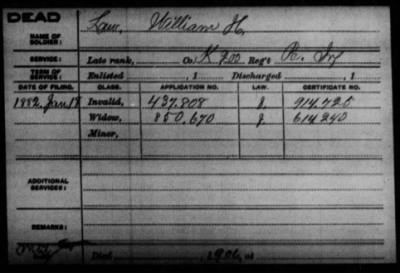 DEAD
NAME OF SOLDIER: Law, William H.
SERVICE: Late rank, Co. K Reg't
TERM OF SERVICE: Enlisted , 1 Discharged , 1
DATE OF FILING. CLASS. APPLICATION NO. LAW. CERTIFICATE NO.
1882, Jan 18 Invalid, 437.808 914.725
Widow, 850.670 614240
Minor,
ADDITIONAL SERVICES:
REMARKS:
Died 1906, at